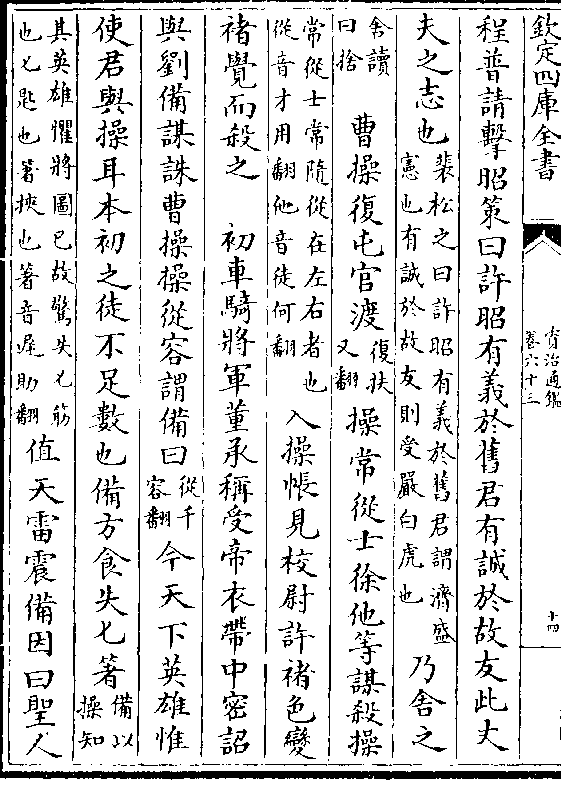 欽定四庫全書
資治通鑑
卷六十三
十四
程普請擊昭策曰許昭有義於舊君有誠於故友此丈
夫之志也裴松之曰許昭有義於舊君謂濟盛
憲也有誠於故友則受嚴白虎也乃舍之
舍讀
曰捨曹操復屯官渡復扶
又翻操常從士徐他等謀殺操
常從士常隨從在左右者也
從音才用翻他音徒何翻入操帳見校尉許褚色變
褚覺而殺之初車騎將軍董承稱受帝衣帶中密詔
與劉備謀誅曹操操從容謂備曰從千
容翻今天下英雄惟
使君與操耳本初之徒不足數也備方食失匕著備以
操知
其英雄懼將圖已故驚失匕筯
也匕匙也著挾也著音遲助翻值天雷震備因曰聖人